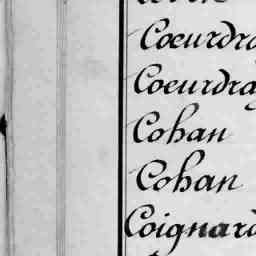 Coeurdra
Coeurdray
Cohan
Cohan
Coignard